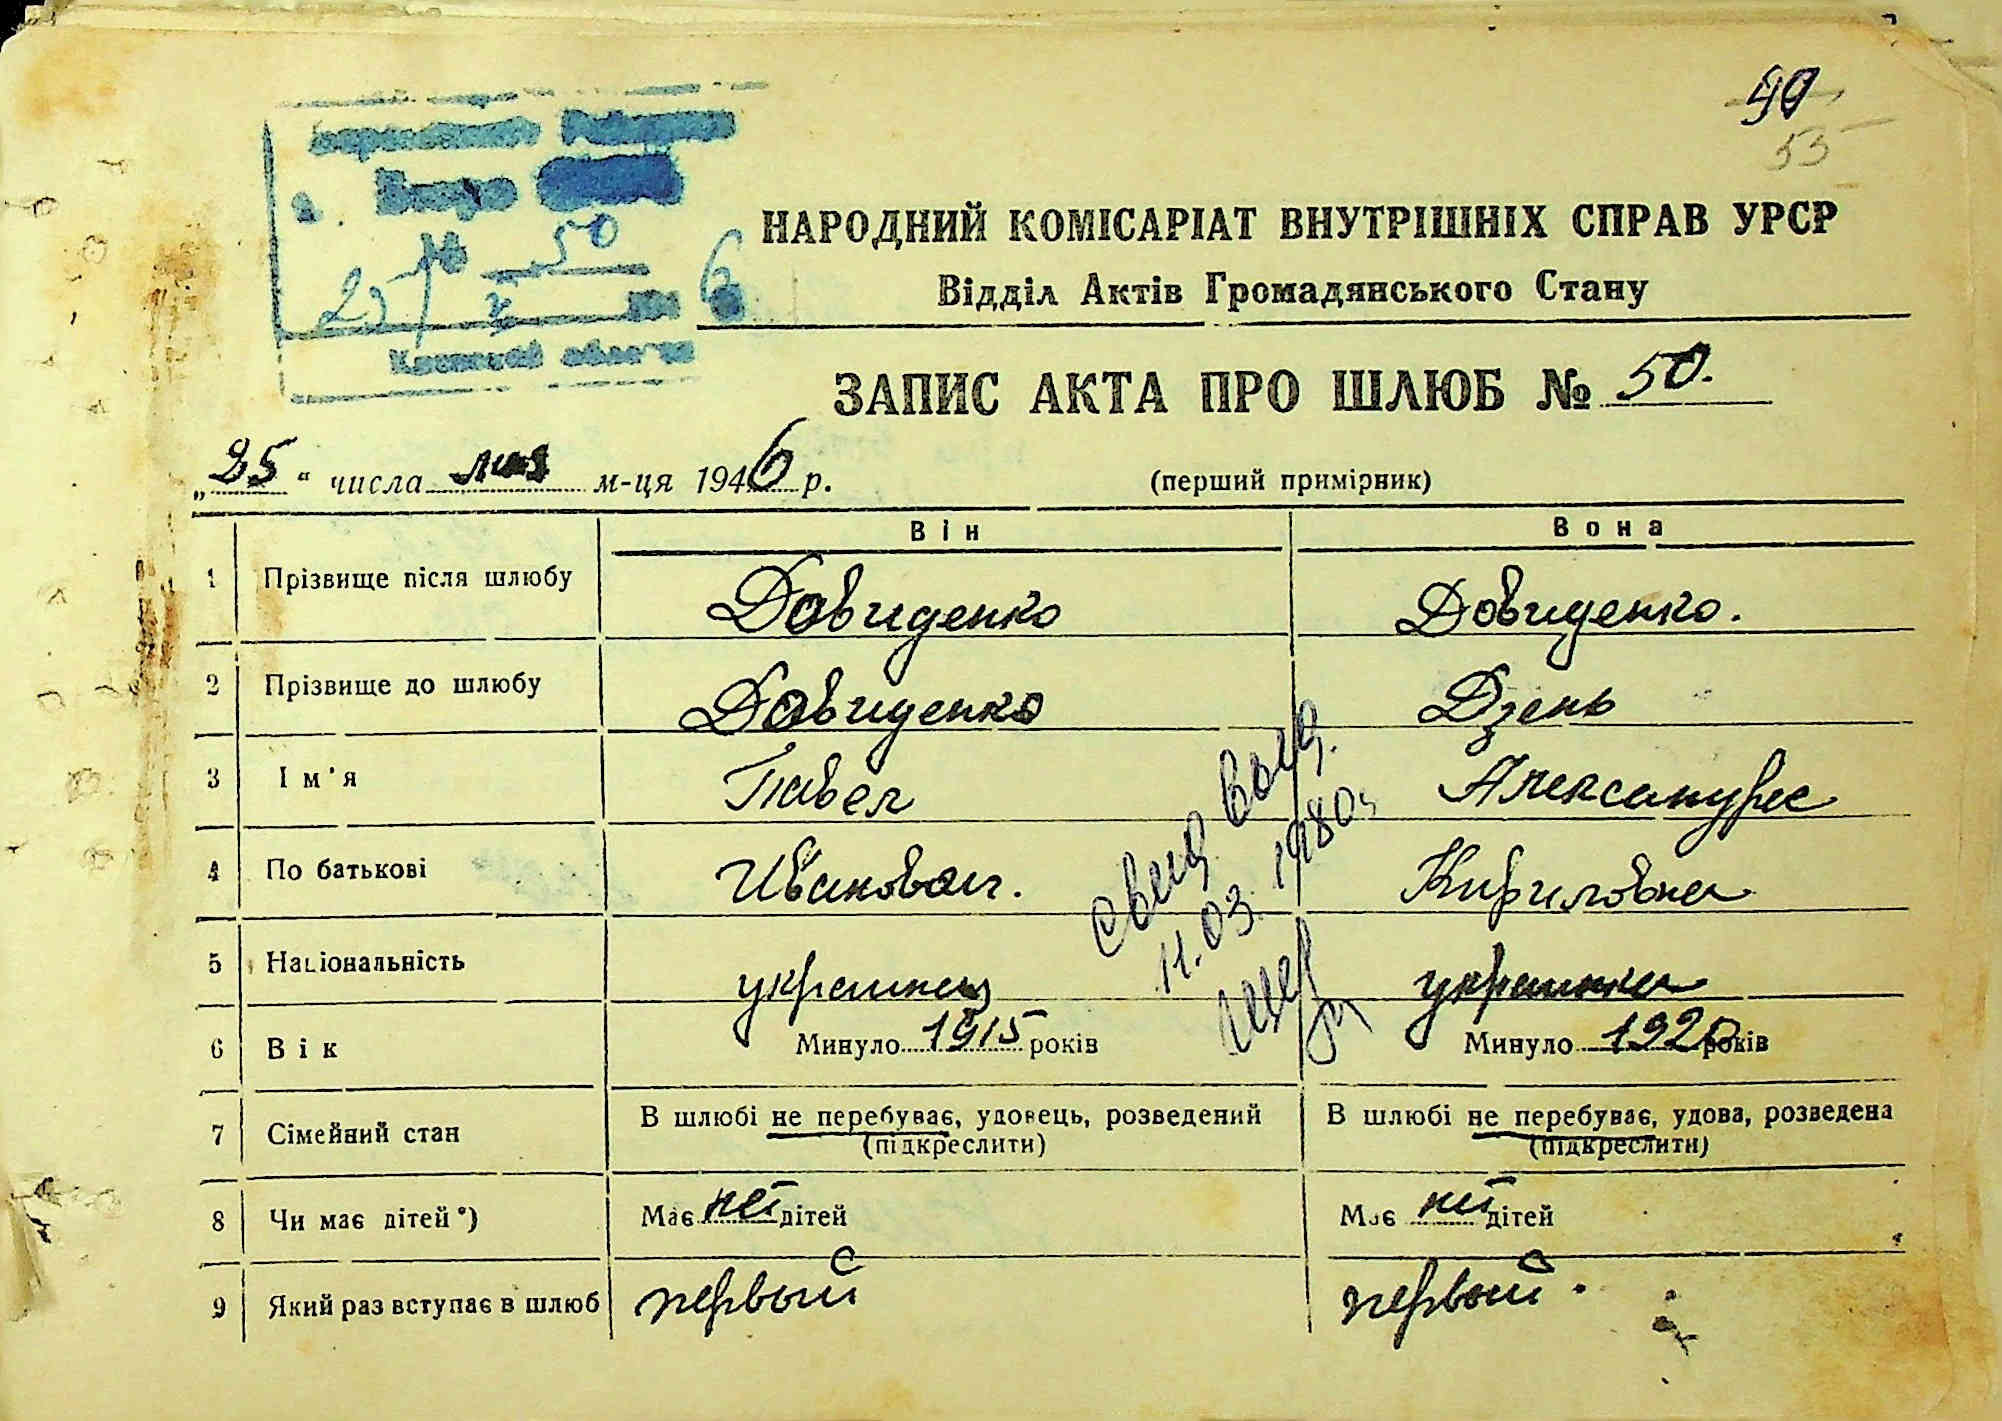 40
55
50
25
6
НАРОДНИЙ КОМІСАРІАТ ВНУТРІШНІХ СПРАВ УРСР
Відділ Актів Громадянського Стану
ЗАПИС АКТА ПРО ШЛЮБ № 50.
„25“ числа мая м-ця 1946 р. (перший примірник)
Він Вона
1 Прізвище після шлюбу Довиденко Довиденко.
2 Прізвище до шлюбу Довиденко Дзень
3 Ім'я Павел Александра
4 По батькові Иванович. Кириловна
5 Національність украинец украинка
6 Вік Минуло 1915 років Минуло 1920 років
7 Сімейний стан В шлюбі не перебуває, удовець, розведений В шлюбі не перебуває, удова, розведена
(підкреслити) (підкреслити)
8 Чи має дітей*) Має неї дітей Має неї дітей
9 Який раз вступає в шлюб первый первый.
11.03.1980